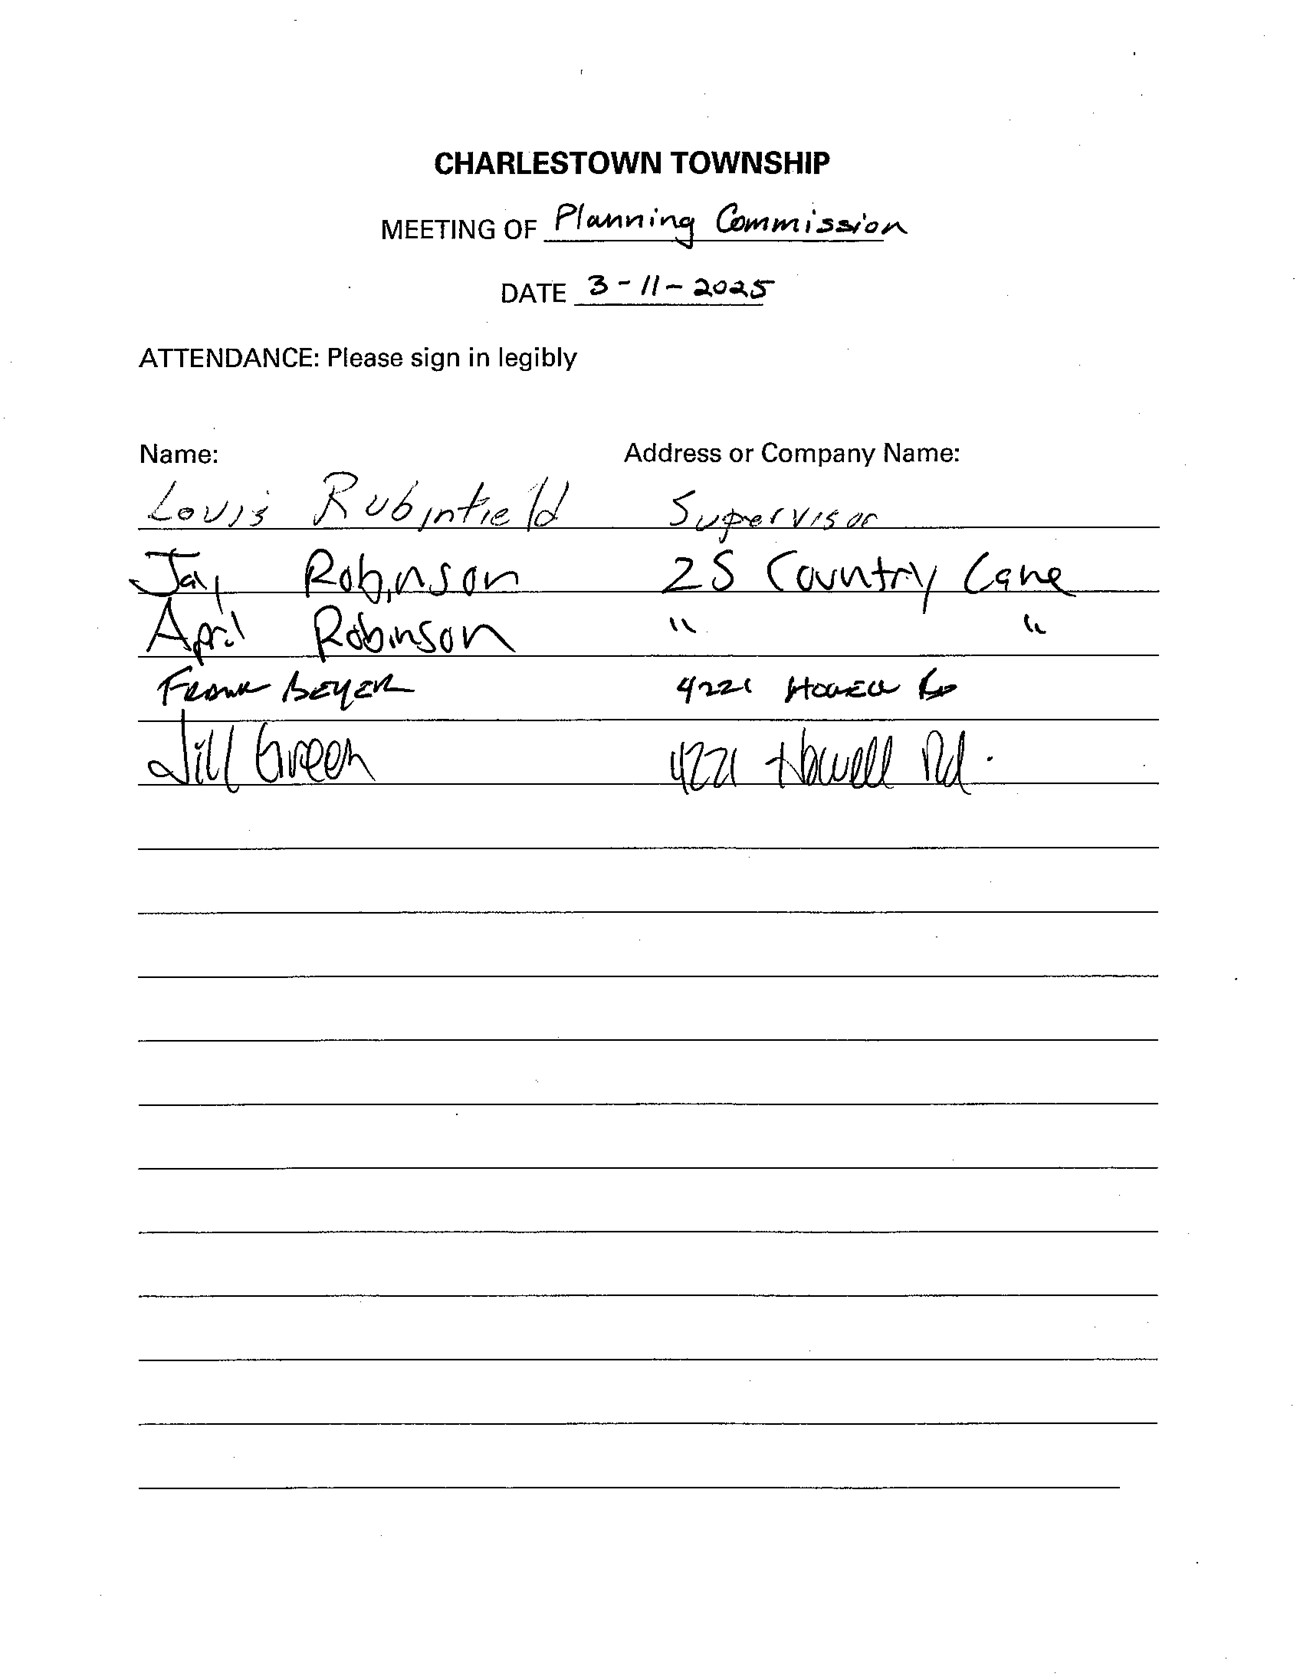 CHARLESTOWN TOWNSHIP
MEETING OF Planning Commission
DATE 3-11-2025
ATTENDANCE: Please sign in legibly
Name: Address or Company Name:
Louis Rubinfield Supervisor
Jay Robinson 25 Country Lane
April Robinson " "
Frank Beyer 4221 Howell Rd
Jill Green 4221 Howell Rd.